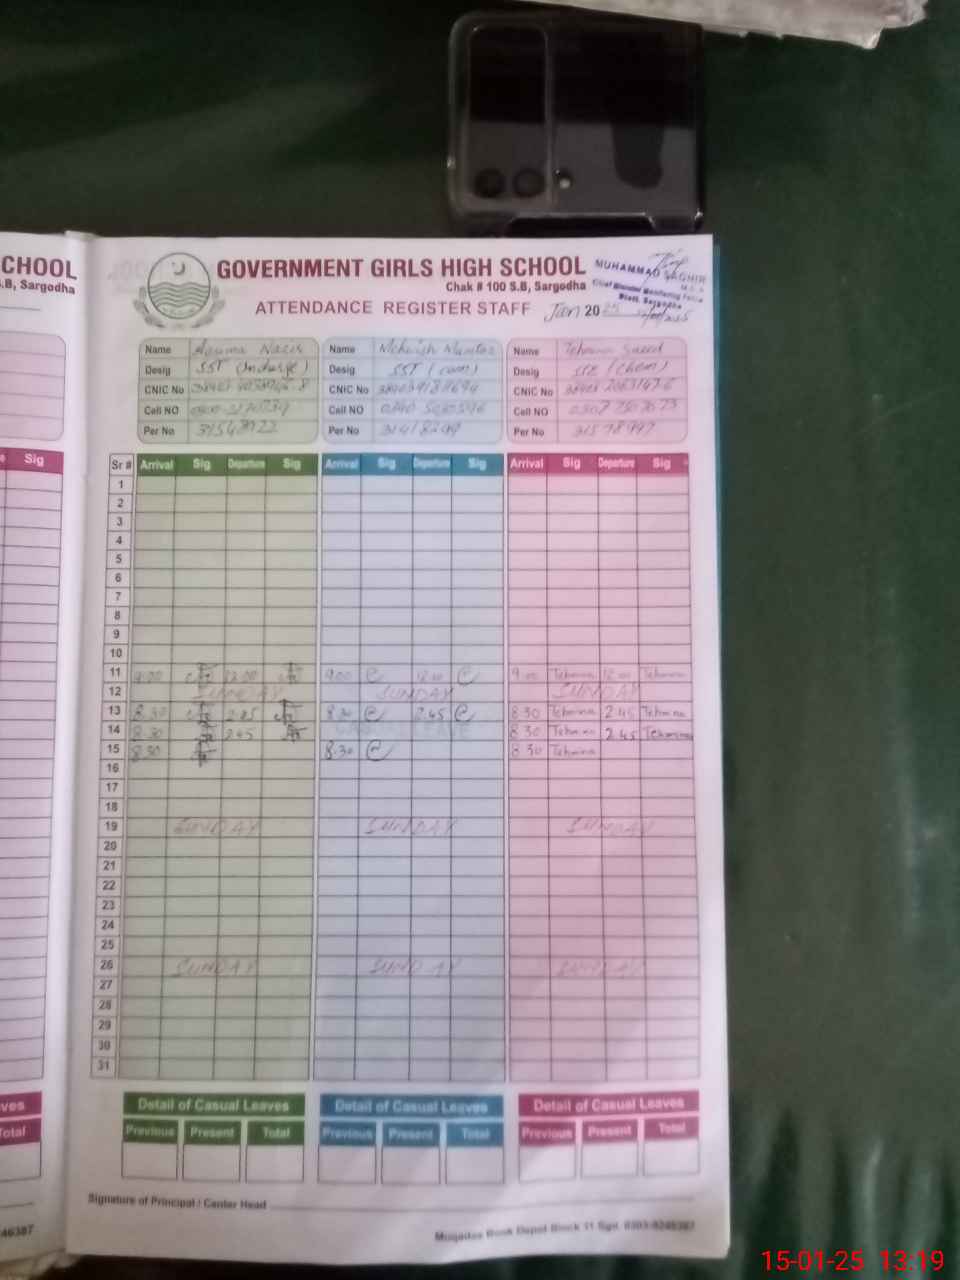 CHOOL
S.B, Sargodha
GOVERNMENT GIRLS HIGH SCHOOL
Chak # 100 S.B, Sargodha
ATTENDANCE REGISTER STAFF Jan 2025
MUHAMMAD SAGHIR
Name Name Mehwish Mumtaz Name Tehmina Saeed
Desig SST (Incharge) Desig SST (com) Desig SSE (Chem)
CNIC No CNIC No CNIC No
Cell NO Cell NO Cell NO
Per No Per No Per No 31578997
Sig
Sr # Arrival Sig Departure Sig Arrival Sig Departure Sig Arrival Sig Departure Sig
1
2
3
4
5
6
7
8
9
10
11 9:00 12:00 9:00 12:00 9:00 Tehmina 12:00 Tehmina
12 SUNDAY SUNDAY SUNDAY
13 8.30 2.45 8.30 2.45 8 30 Tehmina 2.45 Tehmina
14 8.30 2.45 CASUAL LEAVE 8 30 Tehmina 2.45 Tehmina
15 8.30 8.30 8 30 Tehmina
16
17
18
19 SUNDAY SUNDAY SUNDAY
20
21
22
23
24
25
26 SUNDAY SUNDAY SUNDAY
27
28
29
30
31
ves
Total
Detail of Casual Leaves Detail of Casual Leaves Detail of Casual Leaves
Previous Present Total Previous Present Total Previous Present Total
Signature of Principal / Center Head
46387
Muqadas Book Depot Block 11 Sgd.
15-01-25 13:19